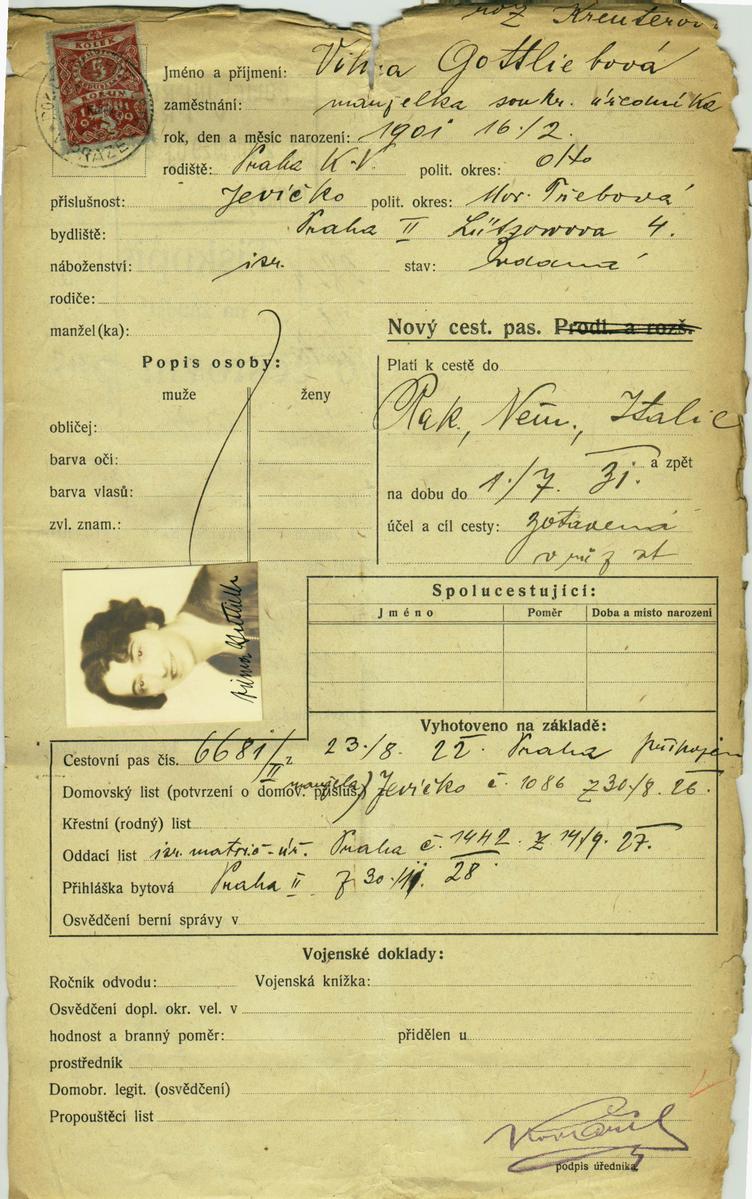 roz Kreuterov
KOLEK
5
KORUN
PRAZE
Jméno a příjmení: Vilma Gottliebová
zaměstnání: manželka soukr. úředníka
rok, den a měsíc narození: 1901 16./2.
rodiště: Praha K.V. polit. okres:
příslušnost: Jevíčko polit. okres: Mor. Třebová
bydliště: Praha II Lützowova 4.
náboženství: isr. stav: vdaná
rodiče:
manžel(ka):
Nový cest. pas. Prodl. a rozš.
Popis osoby:
muže ženy
obličej:
barva očí:
barva vlasů:
zvl. znam.:
Platí k cestě do
Rak., Něm., Italie
a zpět
na dobu do 1./7. 31.
účel a cíl cesty: zotavená
Vilma Gottlieb
Spolucestující:
Jméno Poměr Doba a místo narození
Vyhotoveno na základě:
Cestovní pas čís. 6681/II 23./8. 22. Praha
manžela)
Domovský list (potvrzení o domov. přísluš.) Jevíčko č. 1086 z 30./8. 26.
Křestní (rodný) list
Oddací list isr. matrič. úř. Praha č. 1442. z 14/9. 27.
Přihláška bytová Praha II z 30./11. 28.
Osvědčení berní správy v
Vojenské doklady:
Ročník odvodu: Vojenská knížka:
Osvědčení dopl. okr. vel. v
hodnost a branný poměr: přidělen u
prostředník
Domobr. legit. (osvědčení)
Propouštěcí list
podpis úředníka